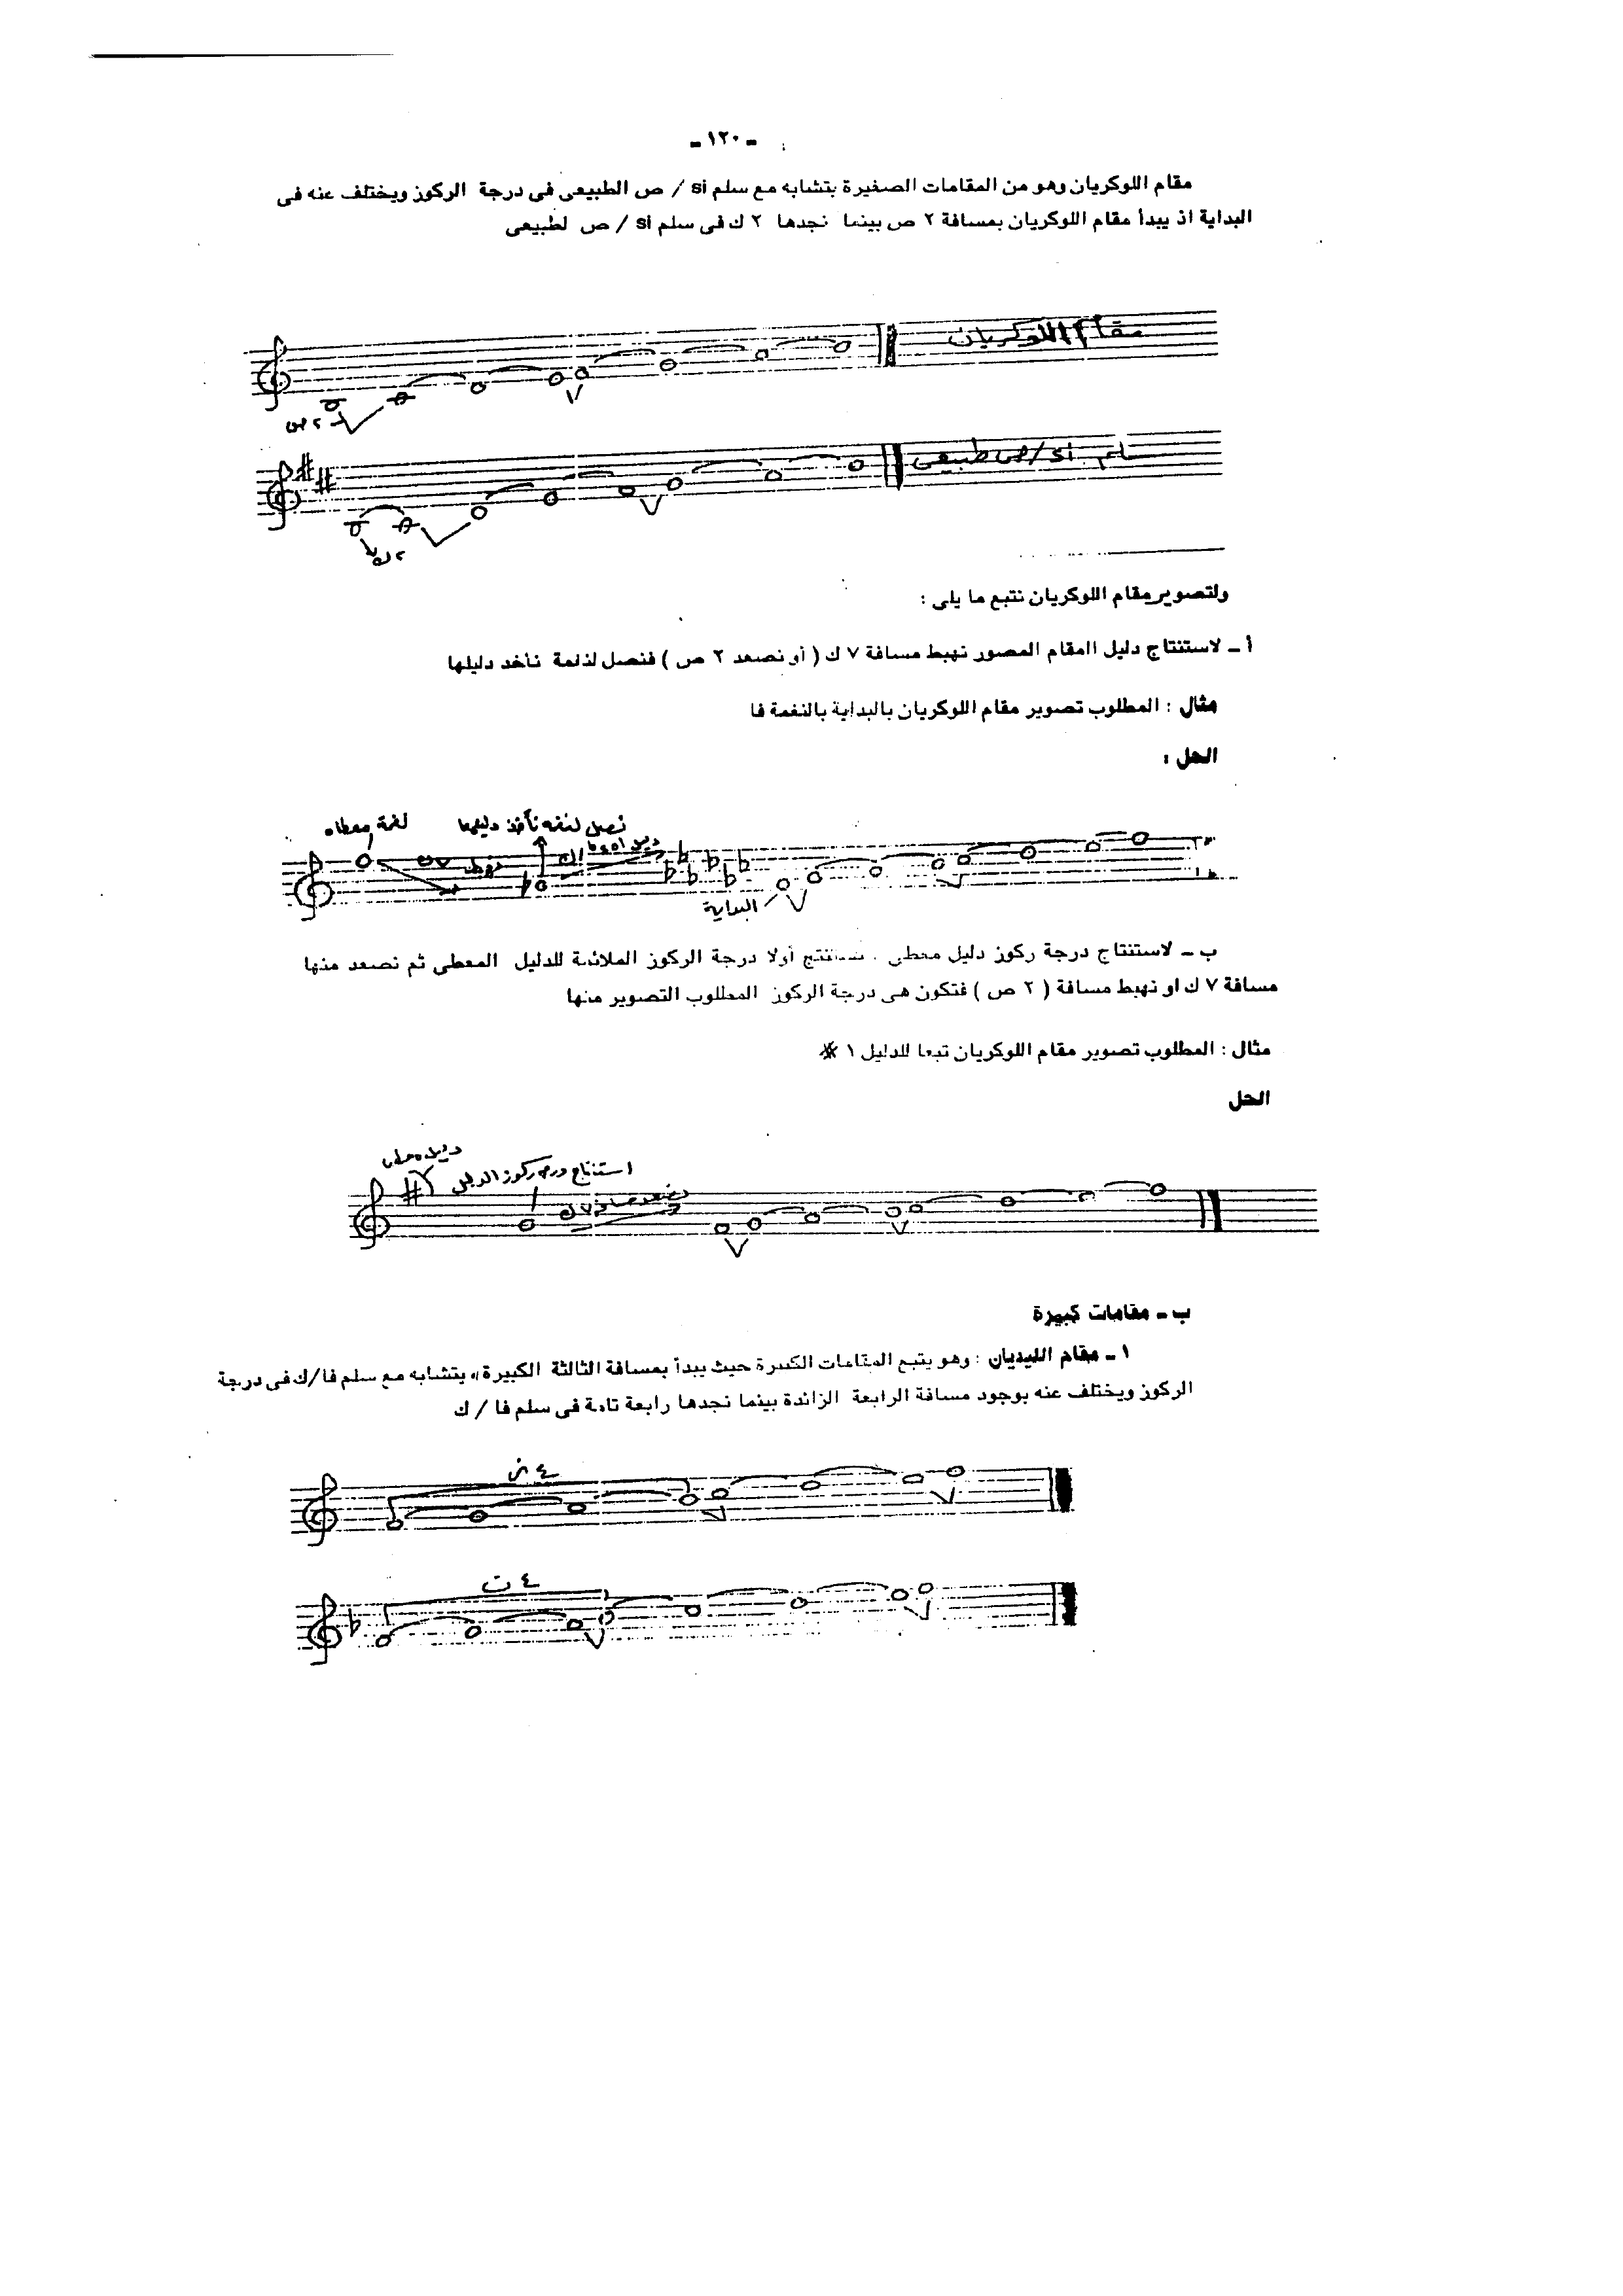 - ١٢٠ -
مقام اللوكريان وهو من المقامات الصغيرة يتشابه مع سلم si / ص الطبيعى فى درجة الركوز ويختلف عنه فى
البداية اذ يبدأ مقام اللوكريان بمسافة ٢ ص بينما نجدها ٢ ك فى سلم si / ص لطبيعى
مقام اللوكريان
٢ ص
سلم سى/ص طبيعى
٢ ك
ولتصوير مقام اللوكريان نتبع ما يلى :
أ - لاستنتاج دليل المقام المصور نهبط مسافة ٧ ك ( أو نصعد ٢ ص ) فنصل لنغمة نأخد دليلها
مثال : المطلوب تصوير مقام اللوكريان بالبداية بالنغمة فا
الحل :
نغمة معطاه
نصل لنغمه نأخذ دليلها
نهبط ٧ ك
البداية
ب - لاستنتاج درجة ركوز دليل معطى . نستنتج أولا درجة الركوز الملائمة للدليل المعطى ثم نصعد منها
مسافة ٧ ك او نهبط مسافة ( ٢ ص ) فتكون هى درجة الركوز المطلوب التصوير منها
مثال : المطلوب تصوير مقام اللوكريان تبعا للدليل ١ #
الحل
دليل معطى
استنتاج درجة ركوز الدليل
نصعد مسافة ٧ ك
ب - مقامات كبيرة
١ - مقام الليديان : وهو يتبع المقامات الكبيرة حيث يبدأ بمسافة الثالثة الكبيرة، يتشابه مع سلم فا/ك فى درجة
الركوز ويختلف عنه بوجود مسافة الرابعة الزائدة بينما نجدها رابعة تامة فى سلم فا / ك
٤ ز
٤ ت